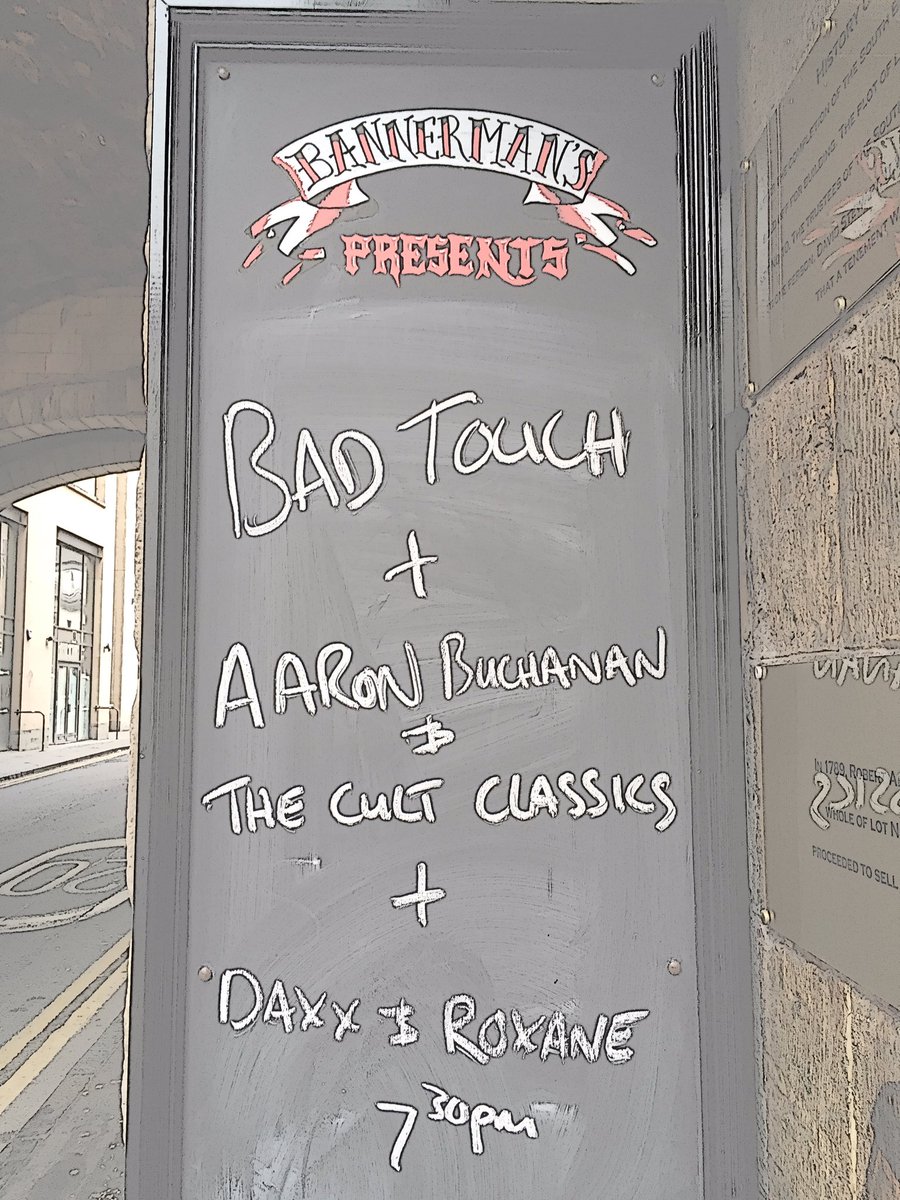 BANNERMAN'S
PRESENTS
BAD TOUCH
+
AARON BUCHANAN
&
THE CULT CLASSICS
+
DAXX & ROXANE
7 30pm
HISTORY O
COMPLETION OF THE SOUTH B
BUILDING. THE PLOT OF L
THE TRUSTEES OF
THAT A TENEMENT
IN 1789, ROBE
WHOLE OF LOT N
PROCEEDED TO SELL
20